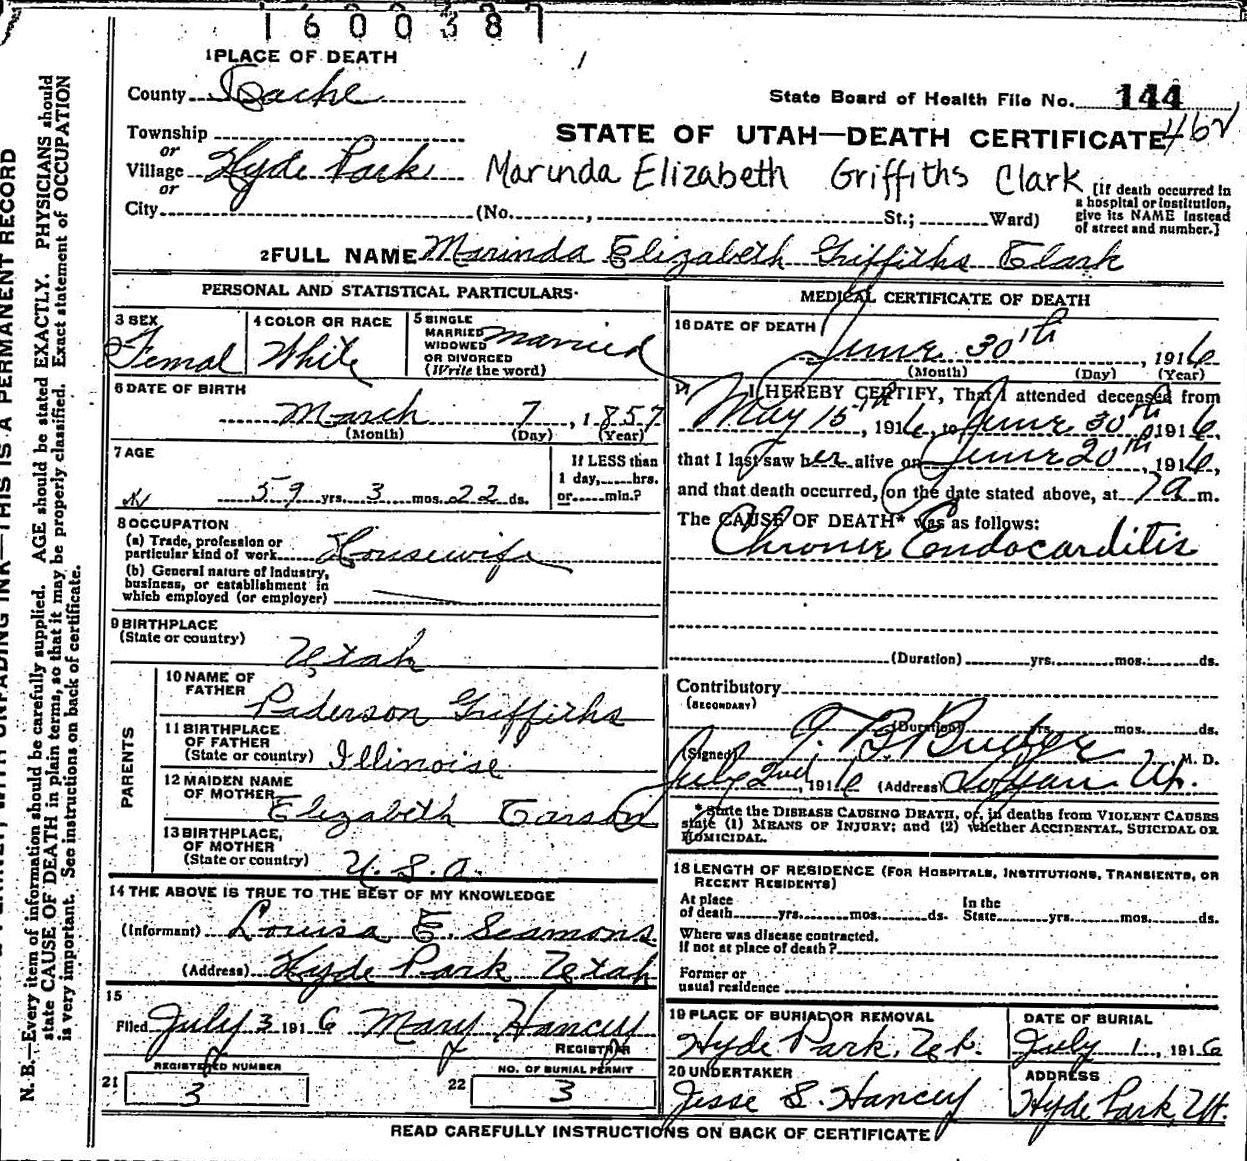 1600387
1 PLACE OF DEATH
County Cache
State Board of Health File No. 144
Township
or
STATE OF UTAH—DEATH CERTIFICATE 462
Village Hyde Park Marinda Elizabeth Griffiths Clark
or
City (No. , St.; Ward)
[If death occurred in
a hospital or institution,
give its NAME instead
of street and number.]
2 FULL NAME Marinda Elizabeth Griffiths Clark
PERSONAL AND STATISTICAL PARTICULARS
3 SEX
Femal
4 COLOR OR RACE
White
5 SINGLE
MARRIED
WIDOWED
OR DIVORCED
(Write the word)
Married
6 DATE OF BIRTH
March 7, 1857
(Month) (Day) (Year)
7 AGE
59 yrs. 3 mos. 22 ds.
If LESS than
1 day, hrs.
or min.?
8 OCCUPATION
(a) Trade, profession or
particular kind of work Housewife
(b) General nature of Industry,
business, or establishment in
which employed (or employer)
9 BIRTHPLACE
(State or country)
Utah
PARENTS
10 NAME OF
FATHER
Paderson Griffiths
11 BIRTHPLACE
OF FATHER
(State or country) Illinoise
12 MAIDEN NAME
OF MOTHER
Elizabeth Carson
13 BIRTHPLACE,
OF MOTHER
(State or country) U.S.A.
14 THE ABOVE IS TRUE TO THE BEST OF MY KNOWLEDGE
(Informant) Louisa E. Seamons.
(Address) Hyde Park Utah
15
Filed July 3 1916 Mary Hancey
REGISTRAR
REGISTERED NUMBER
21 3
NO. OF BURIAL PERMIT
22 3
MEDICAL CERTIFICATE OF DEATH
16 DATE OF DEATH
June 30th, 1916
(Month) (Day) (Year)
17 I HEREBY CERTIFY, That I attended deceased from
May 15th, 1916, to June 30th 1916,
that I last saw her alive on June 20th, 1916,
and that death occurred, on the date stated above, at 7 a m.
The CAUSE OF DEATH* was as follows:
Chronic Endocarditis
(Duration) yrs. mos. ds.
Contributory
(SECONDARY)
(Duration) yrs. mos. ds.
(Signed) M. D.
July 2nd, 1916 (Address) Logan Ut.
* State the DISEASE CAUSING DEATH, or, in deaths from VIOLENT CAUSES
state (1) MEANS OF INJURY; and (2) whether ACCIDENTAL, SUICIDAL OR
HOMICIDAL.
18 LENGTH OF RESIDENCE (FOR HOSPITALS, INSTITUTIONS, TRANSIENTS, OR
RECENT RESIDENTS)
At place
of death yrs. mos. ds.
In the
State yrs. mos. ds.
Where was disease contracted.
If not at place of death?
Former or
usual residence
19 PLACE OF BURIAL OR REMOVAL
Hyde Park, Ut.
DATE OF BURIAL
July 1, 1916
20 UNDERTAKER
Jesse S. Hancey
ADDRESS
Hyde Park, Ut.
READ CAREFULLY INSTRUCTIONS ON BACK OF CERTIFICATE
THIS IS A PERMANENT RECORD
N. B.—Every item of information should be carefully supplied. AGE should be stated EXACTLY. PHYSICIANS should
state CAUSE OF DEATH in plain terms, so that it may be properly classified. Exact statement of OCCUPATION
is very important. See instructions on back of certificate.